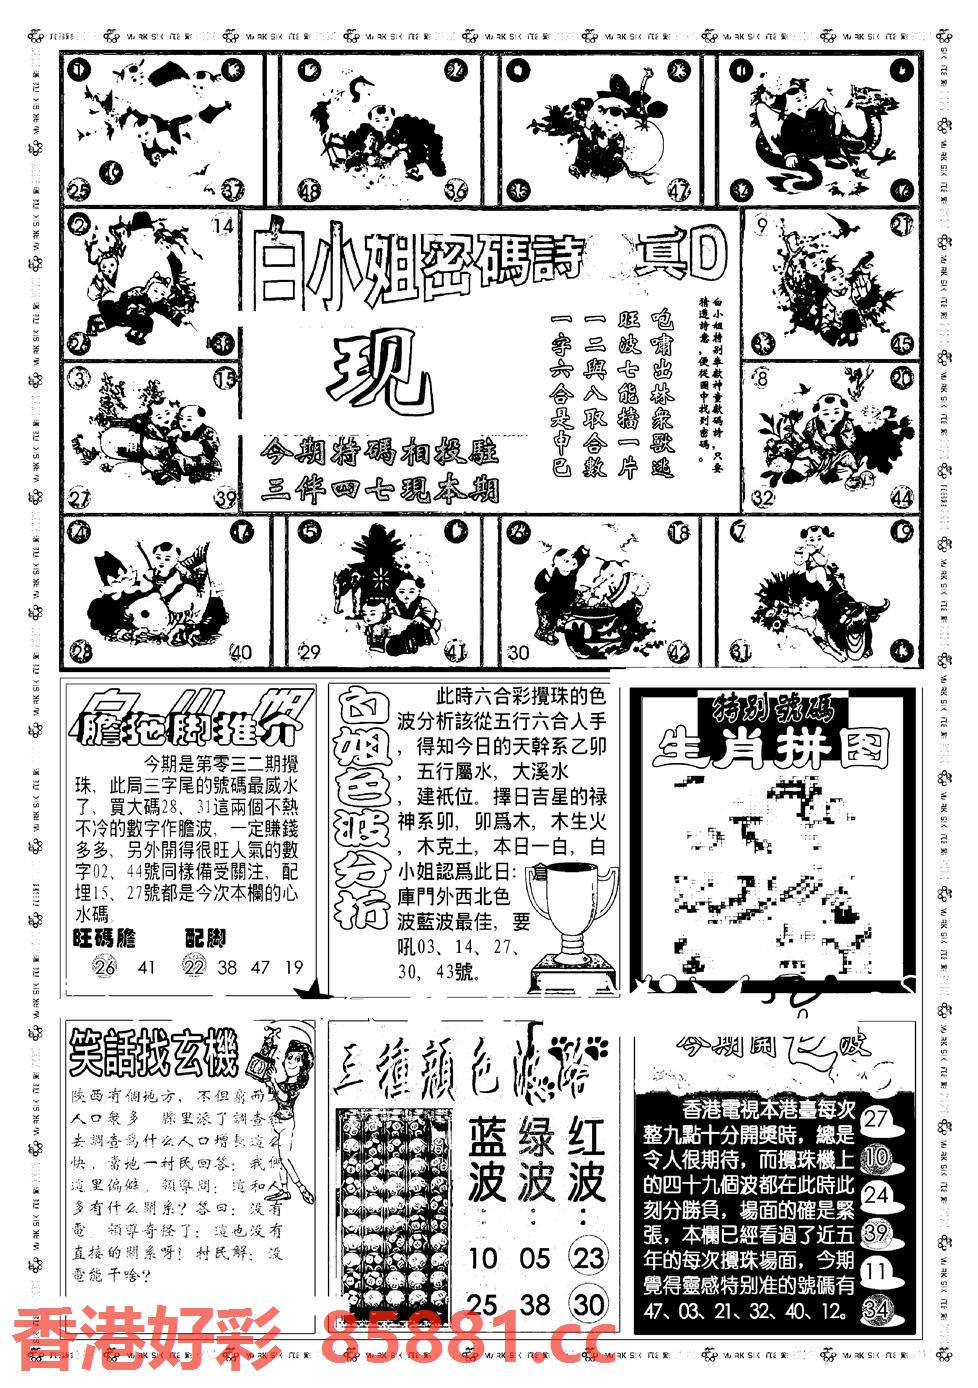 25 37
48 36
47
2 14
9 21
白小姐密碼詩 真D
现
今期特碼相投駐
三伴四七現本期
白小姐特别奉獻神童獻碼詩，只要
猜透詩意，便從圖中找到密碼。
咆嘯出林衆獸逃
旺波七能擋一片
一二與八取合數
一字六合是申巳
33 45
3 15
8 20
27 39
32 44
4
5
18
7 19
28 40
29 41
30 42
31
膽拖脚推介
今期是第零三二期攪
珠，此局三字尾的號碼最威水
了，買大碼28、31這兩個不熱
不冷的數字作膽波，一定賺錢
多多，另外開得很旺人氣的數
字02、44號同樣備受關注，配
埋15、27號都是今次本欄的心
水碼
旺碼膽 配脚
26 41 22 38 47 19
白姐色波分析
此時六合彩攪珠的色
波分析該從五行六合人手
，得知今日的天幹系乙卯
，五行屬水，大溪水
，建祇位。擇日吉星的禄
神系卯，卯爲木，木生火
，木克土，本日一白，白
小姐認爲此日：倉
庫門外西北色
波藍波最佳，要
吼03、14、27、
30、43號。
特别號碼
生肖拼图
笑話找玄機
陝西有個地方，不但窮而
人口衆多 縣里派了調查組
去調查爲什么人口增長這么
快，當地一村民回答：我們
這里偏僻。領導問：這和人
多有什么關系？答曰：没有
電。領導奇怪了：這也没有
直接的關系呀！村民解：没
電能干啥？
三種顔色波路
蓝波： 绿波： 红波：
10 05 23
25 38 30
今期開 波
香港電視本港臺每次
整九點十分開獎時，總是
令人很期待，而攪珠機上
的四十九個波都在此時此
刻分勝負，場面的確是緊
張，本欄已經看過了近五
年的每次攪珠場面，今期
覺得靈感特别准的號碼有
47、03、21、32、40、12。
27
10
24
39
11
34
香港好彩 85881.cc